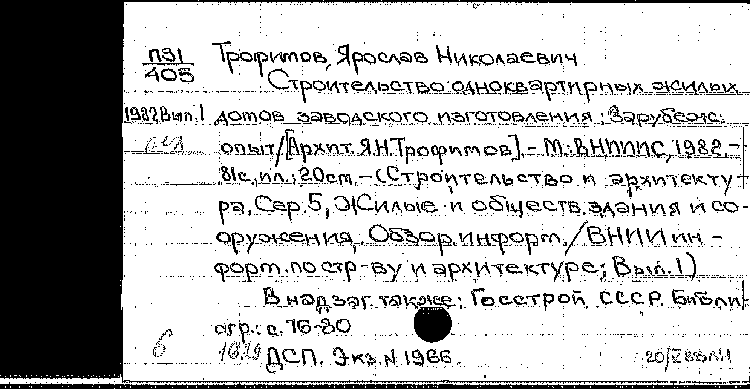 П31
405
Трофимов, Ярослав Николаевич
Строительство одноквартирных жилых
1982 Вып. 1 домов заводского изготовления: Зарубеж.
опыт/[Архит. Я.Н.Трофимов].- М.: ВНИИИС, 1982.-
81с., ил.; 20см.-(Строительство и архитекту-
ра. Сер. 5, Жилые и обществ. здания и со-
оружения. Обзор. информ./ВНИИ ин-
форм. по стр-ву и архитектуре; Вып. 1)
В надзаг. также: Госстрой СССР. Библи-
огр.: с. 76-80
б ДСП. Экз. N 1966.